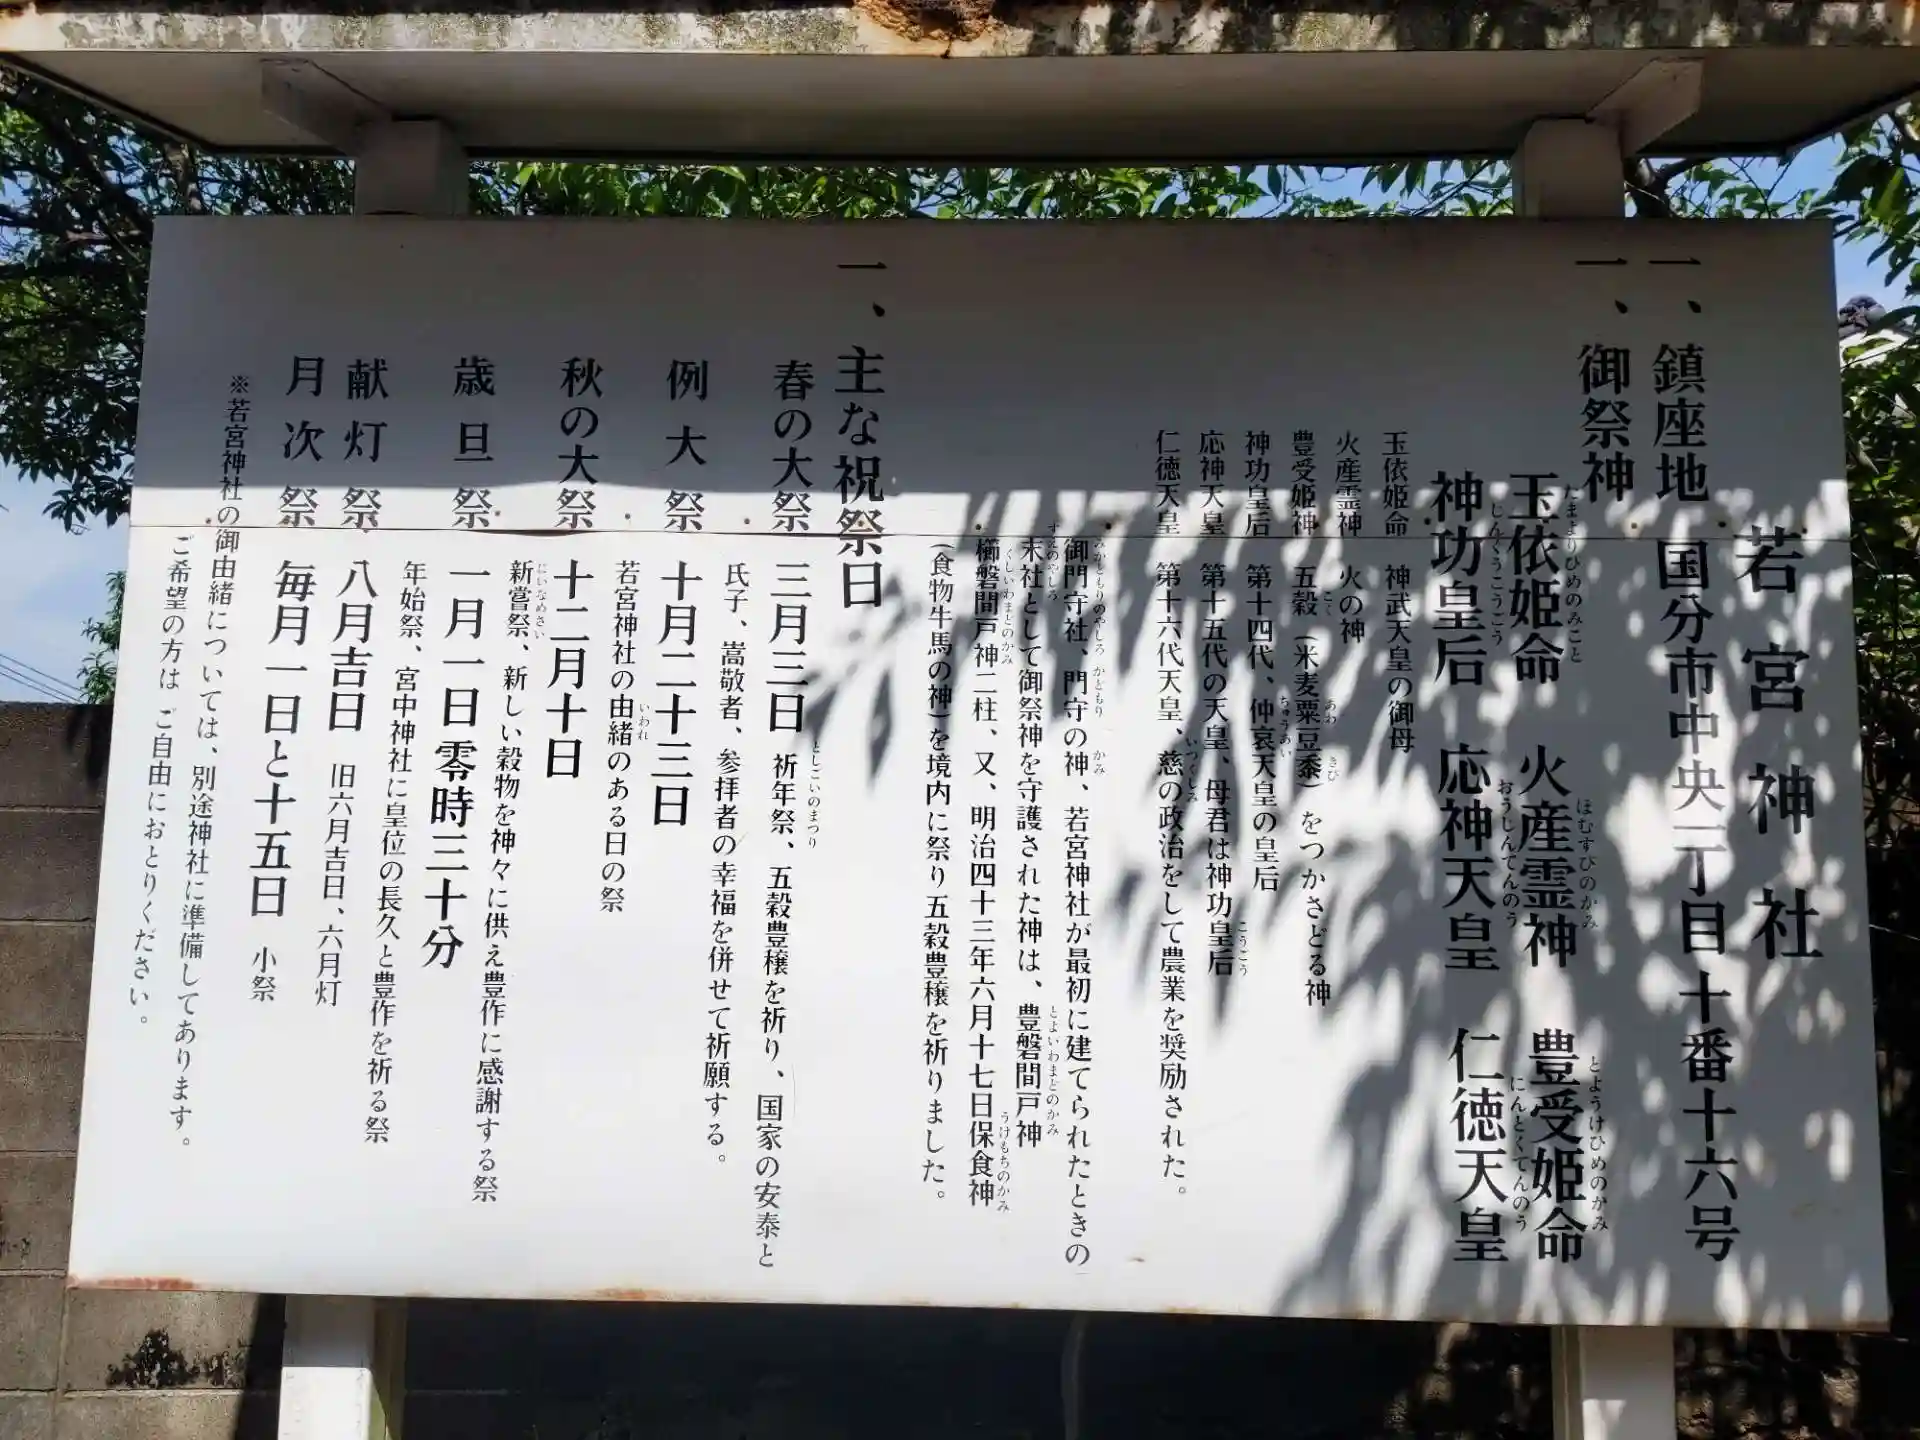 若宮神社
一、鎮座地 国分市中央一丁目十番十六号
一、御祭神
玉依姫命 火産霊神 豊受姫命
たまよりひめのみこと ほむすびのかみ とようけひめのかみ
神功皇后 応神天皇 仁徳天皇
じんぐうこうごう おうじんてんのう にんとくてんのう
玉依姫命 神武天皇の御母
火産霊神 火の神
豊受姫神 五穀(米麦粟豆黍)をつかさどる神
こく あわ きび
神功皇后 第十四代、仲哀天皇の皇后
ちゅうあい
応神天皇 第十五代の天皇、母君は神功皇后
こうごう
仁徳天皇 第十六代天皇、慈の政治をして農業を奨励された。
いつくしみ
御門守社、門守の神、若宮神社が最初に建てられたときの
みかどもりのやしろ かどもり かみ
末社として御祭神を守護された神は、豊磐間戸神
すえのやしろ とよいわまどのかみ
櫛磐間戸神二柱、又、明治四十三年六月十七日保食神
くしいわまどのかみ うけもちのかみ
(食物牛馬の神)を境内に祭り五穀豊穣を祈りました。
一、主な祝祭日
春の大祭 三月三日 祈年祭、五穀豊穣を祈り、国家の安泰と
としごいのまつり
氏子、嵩敬者、参拝者の幸福を併せて祈願する。
例大祭 十月二十三日
若宮神社の由緒のある日の祭
いわれ
秋の大祭 十二月十日
新嘗祭、新しい穀物を神々に供え豊作に感謝する祭
にいなめさい
歳旦祭 一月一日零時三十分
年始祭、宮中神社に皇位の長久と豊作を祈る祭
献灯祭 八月吉日 旧六月吉日、六月灯
月次祭 毎月一日と十五日 小祭
※若宮神社の御由緒については、別途神社に準備してあります。
ご希望の方は ご自由におとりください。